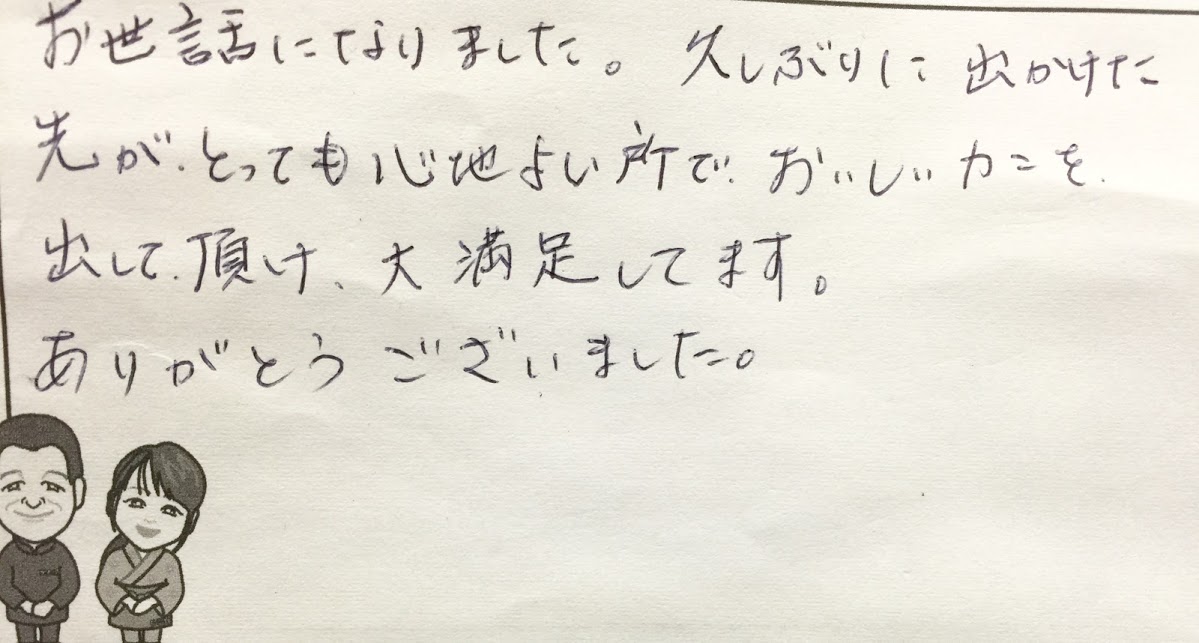 お世話になりました。 久しぶりに 出かけた
先が、とっても心地よい所で、おいしいカニを、
出して、頂け、大満足してます。
ありがとうございました。